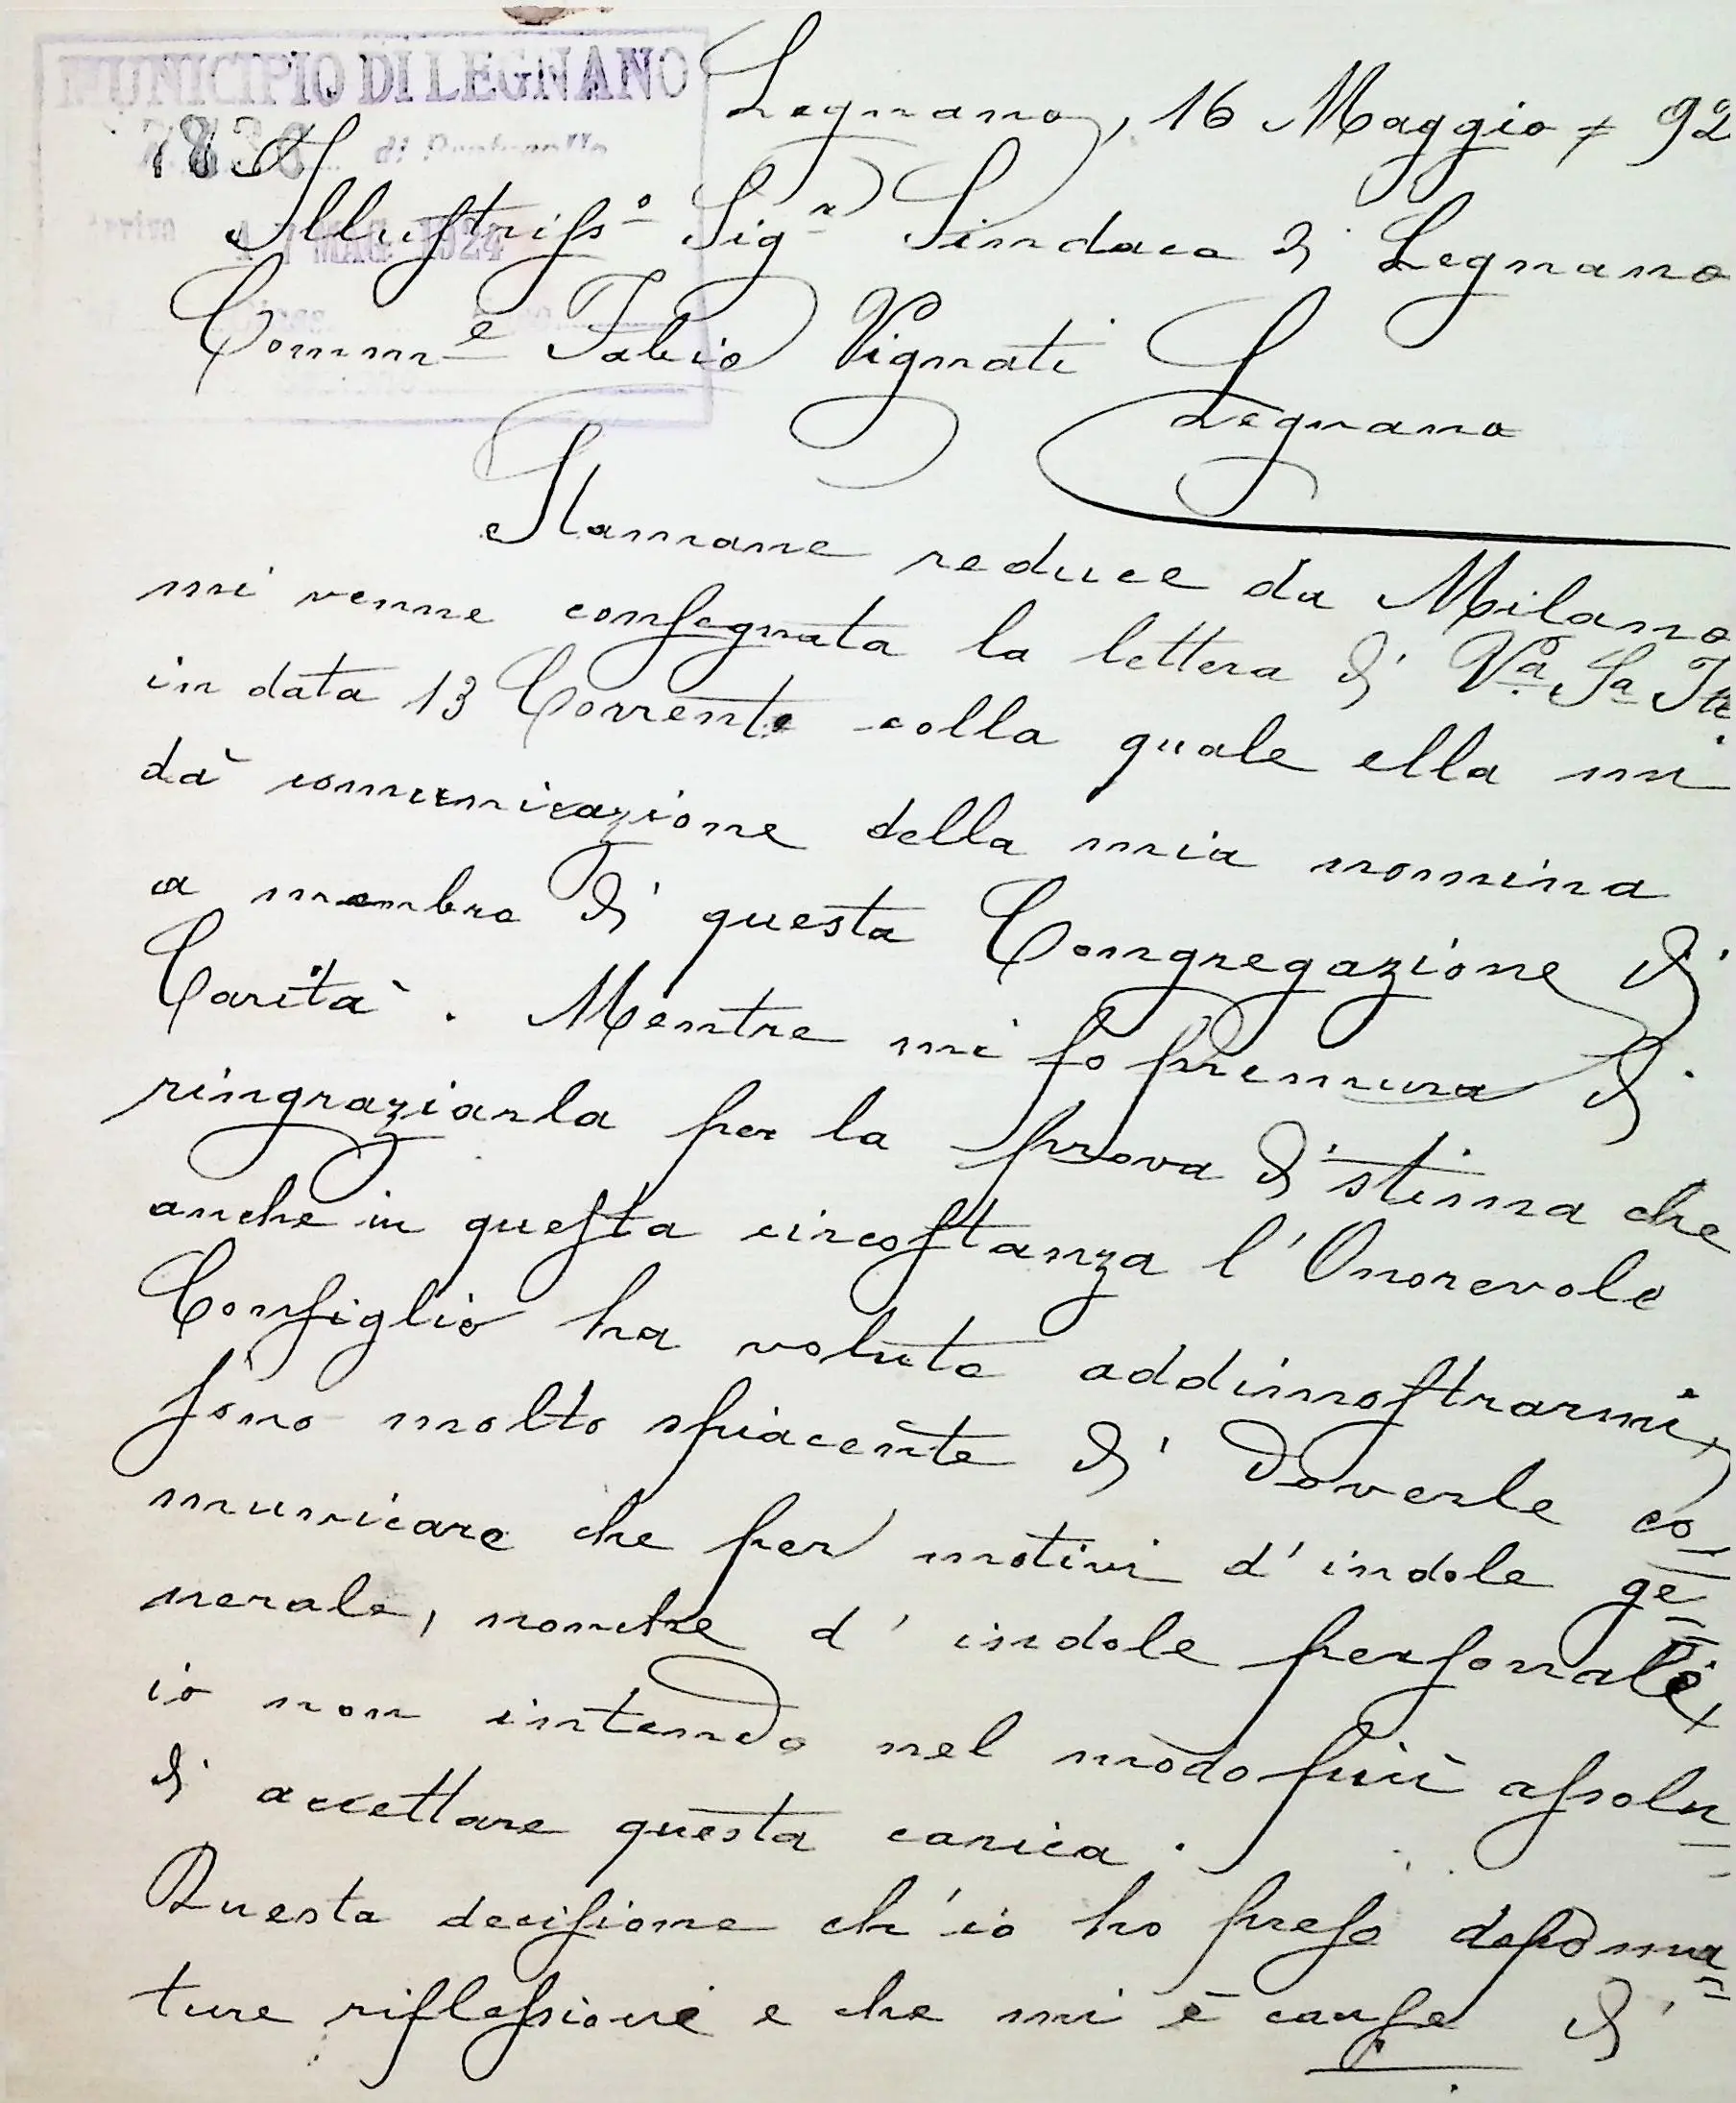 MUNICIPIO DI LEGNANO
7838
17 MAG 1924
Legnano, 16 Maggio 92
Illustriss.o Sig.r Sindaco di Legnano
Comm.e Fabio Vignati
Legnano
Stamane reduce da Milano
mi venne consegnata la lettera di V.a S.a Ill
in data 13 Corrente colla quale ella mi
dà comunicazione della mia nomina
a membro di questa Congregazione di
Carità. Mentre mi fo premura di
ringraziarla per la prova di stima che
anche in questa circostanza l'Onorevole
Consiglio ha voluto addimostrarmi,
sono molto spiacente di doverle co-
municare che per motivi d'indole ge-
nerale, nonche d'indole personale,
io non intendo nel modo più assolu
di accettare questa carica.
Questa decisione ch'io ho preso dopo ma-
ture riflessioni e che mi è causa di